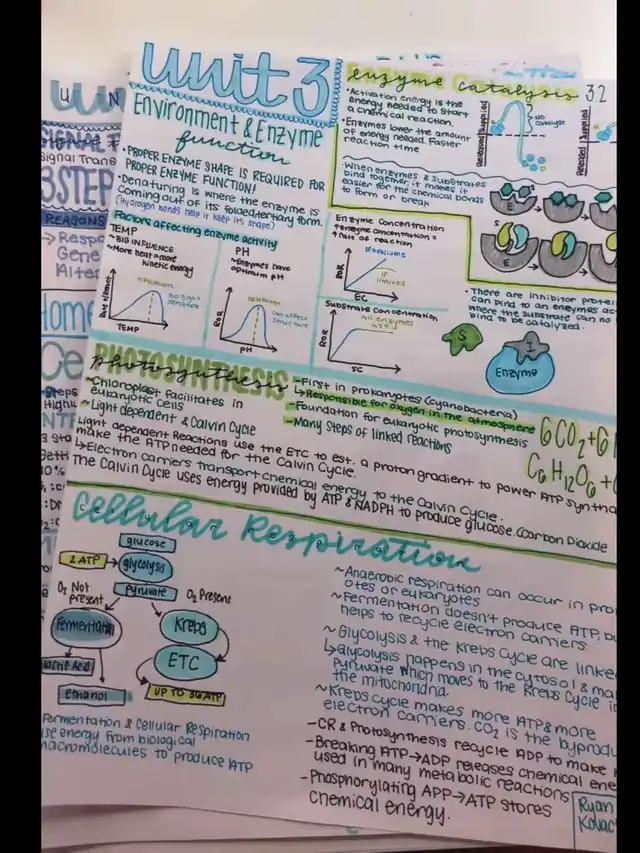 Unit 3
Environment & Enzyme
function
• PROPER ENZYME SHAPE IS REQUIRED FOR
PROPER ENZYME FUNCTION!
• Denaturing is where the enzyme is
coming out of its folded/tertiary form.
(Hydrogen bonds help it keep its shape)
Factors affecting enzyme activity
TEMP
~BIG INFLUENCE
~More heat=more
kinetic energy
optimum
TEMP
PH
~Enzymes have
optimum pH
optimum
can affect
structure
ROR
PH
Enzyme Concentration
↑enzyme concentration=
↑rate of reaction
if available
if limited
ROR
EC
Substrate Concentration
All enzymes
used
ROR
SC
enzyme catalysis
3.2
• Activation energy is the
energy needed to start
a chemical reaction.
• Enzymes lower the amount
of energy needed. Faster
reaction time
Supplied
Released
No
catalyst
Supplied
Released
• When enzymes & substrates
bind together, it makes it
easier for the chemical bonds
to form or break
S
E
E
• There are inhibitor protei
can bind to an enzymes ac
where the substrate can no
bind to be catalyzed.
S
I
Enzyme
PHOTOSYNTHESIS
photosynthesis
~Chloroplast facilitates in
eukaryotic cells
~Light dependent & Calvin Cycle
~First in prokayotes (cyanobacteria)
↳Responsible for oxygen in the atmosphere
-Foundation for eukaryotic photosynthesis
-Many steps of linked reactions
6CO2+6H
C6H12O6+
Light dependent Reactions use the ETC to est. a proton gradient to power ATP syntha
make the ATP needed for the Calvin Cycle.
↳Electron carriers transport chemical energy to the Calvin Cycle.
The Calvin Cycle uses energy provided by ATP & NADPH to produce glucose. (Carbon Dioxide
Cellular Respiration
glucose
2 ATP
glycolysis
pyruvate
O2 Not
present
O2 Present
Fermentation
Krebs
ETC
Lactic Acid
ethanol
UP TO 36 ATP
Fermentation & Cellular Respiration
use energy from biological
macromolecules to produce ATP
~Anaerobic respiration can occur in pro
otes or eukaryotes
~Fermentation doesn't produce ATP, bu
helps to recycle electron carriers
~Glycolysis & the Krebs Cycle are linke
↳Glycolysis happens in the cytosol & ma
Pyruvate which moves to the Krebs Cycle i
the mitochondria.
~Krebs cycle makes more ATP & more
electron carriers. CO2 is the byprodu
-CR & Photosynthesis recycle ADP to make
-Breaking ATP→ADP releases chemical ene
used in many metabolic reactions
-Phosphorylating APP→ATP stores
chemical energy.
Ryan
Kovac
U N
Signal Trans
3 STEP
REASONS
→Respo
Gene
Alter
Home
Ce
Steps